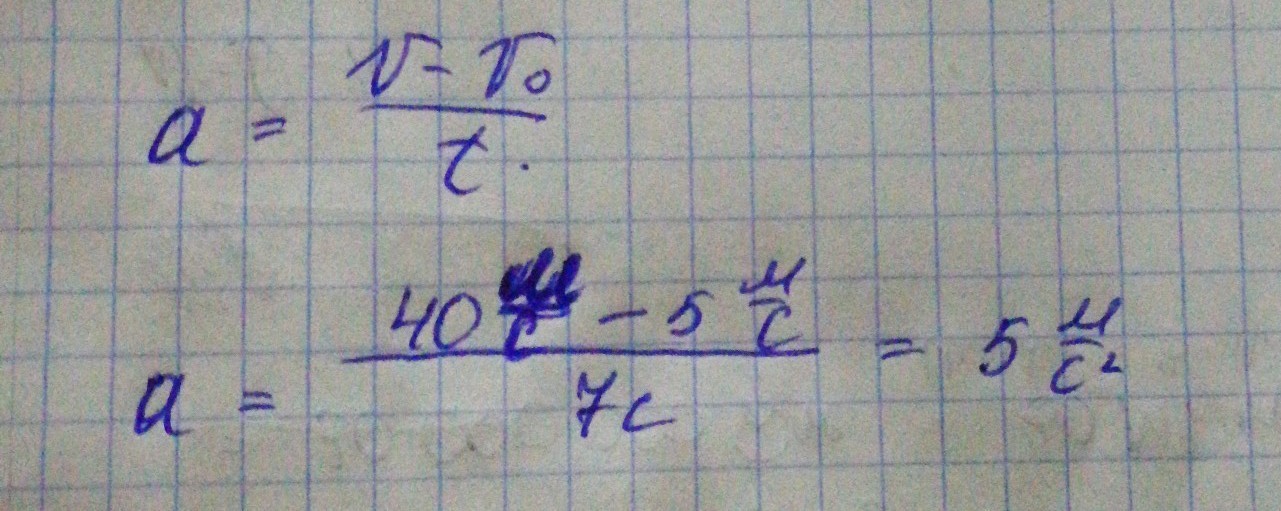 a = (v - v₀) / t.
a = (40 м/с - 5 м/с) / 7с = 5 м/с²